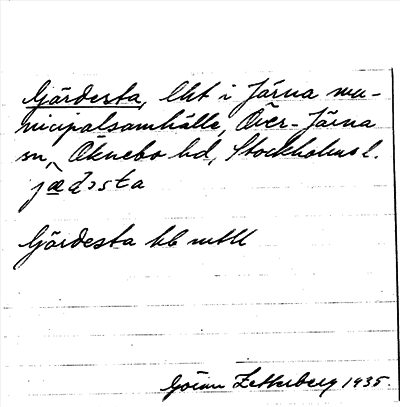 Gärdesta, lht i Järna mu-
nicipalsamhälle, Över-Järna
sn, Öknebo hd, Stockholms l.
Gärdesta
Göran Zetterberg 1935.